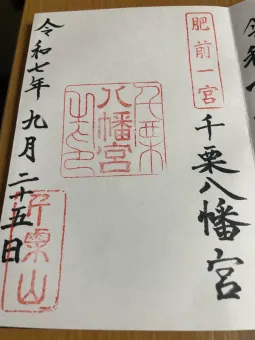 肥前一宮
千栗八幡宮
千栗
八幡宮
之印
令和七年 九月 二十五日
千栗山